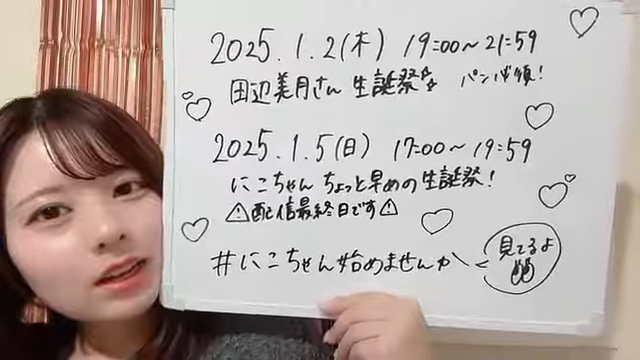 2025.1.2(木) 19:00~21:59
田辺美月さん 生誕祭 パンパ頑!
2025.1.5(日) 17:00~19:59
にこちゃん ちょっと早めの生誕祭!
⚠配信最終日です⚠
#にこちゃん始めませんか
見てるよ